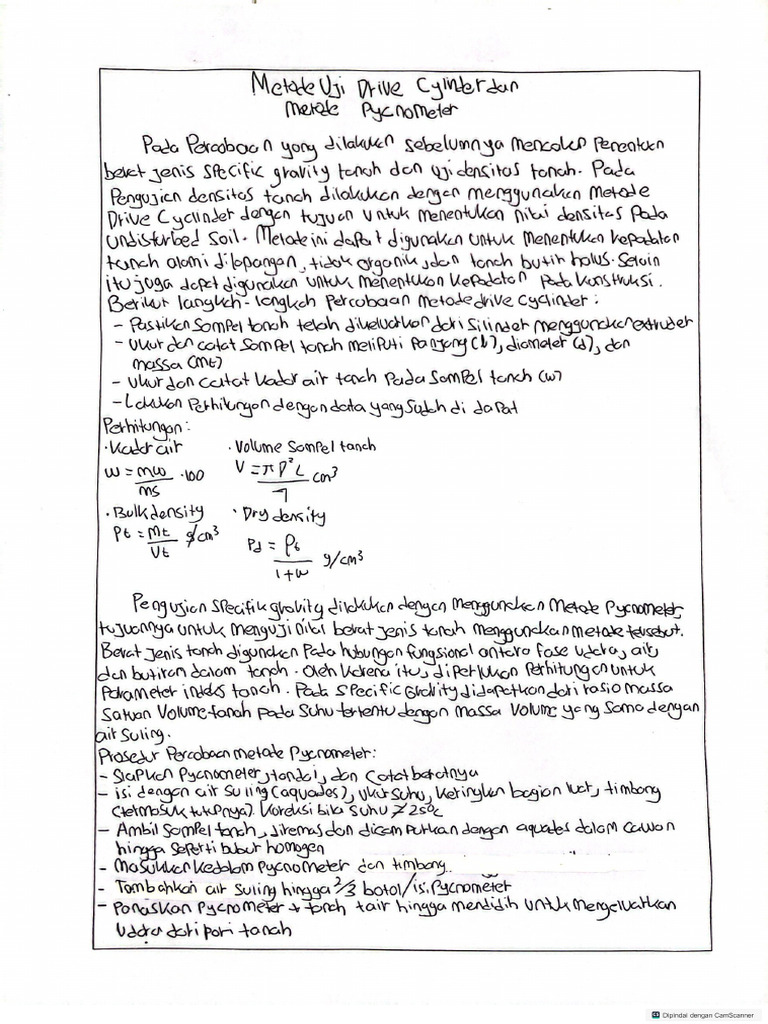 Metode Uji Drive Cylinder dan
Metode Pycnometer
Pada Percobaan yang dilakukan sebelumnya mencakup Penentuan
berat jenis specific gravity tanah dan uji densitas tanah. Pada
Pengujian densitas tanah dilakukan dengan menggunakan Metode
Drive Cyclinder dengan tujuan untuk menentukan nilai densitas Pada
undisturbed soil. Metode ini dapat digunakan untuk Menentukan kepadatan
tanah alami dilapangan, tidak organik, dan tanah butir halus. Selain
itu juga dapat digunakan untuk menentukan kepadatan Pada konstruksi.
Berikut langkah-langkah Percobaan Metode drive Cyclinder :
- Pastikan Sampel tanah telah dikeluarkan dari Silinder menggunakan extruder
- Ukur dan catat Sampel tanah meliputi Panjang (L), diameter (d), dan
massa (Mt)
- Ukur dan catat kadar air tanah Pada Sampel tanah (w)
- Lakukan Perhitungan dengan data yang sudah di dapat
Perhitungan :
· Kadar air · Volume Sampel tanah
w = mw/ms · 100 V = π D² L/7 cm³
· Bulk density · Dry density
Pt = Mt/Vt g/cm³ Pd = ρt/1+w g/cm³
Pengujian Specifik gravity dilakukan dengan Menggunakan Metode Pycnometer,
tujuannya untuk menguji nilai berat jenis tanah menggunakan metode tersebut.
Berat jenis tanah digunakan Pada hubungan fungsional antara fase udara, air,
dan butiran dalam tanah. Oleh karena itu, diperlukan Perhitungan untuk
Parameter indeks tanah. Pada Specific Gravity didapatkan dari rasio massa
Satuan Volume tanah pada Suhu tertentu dengan massa Volume yang Sama dengan
air Suling.
Prosedur Percobaan metode Pycnometer :
- Siapkan Pycnometer, tandai, dan Catat beratnya
- isi dengan air Suling (aquades), ukur Suhu, keringkan bagian luar, timbang
(termasuk tutupnya). Koreksi bila Suhu ≠ 25°C
- Ambil Sampel tanah, diremas dan dicampurkan dengan aquades dalam Cawan
hingga Seperti bubur homogen
- Masukkan kedalam Pycnometer dan timbang..
- Tambahkan air Suling hingga 2/3 botol/isi Pycnometer
- Panaskan Pycnometer + tanah + air hingga mendidih untuk Mengeluarkan
Udara dari pori tanah
Dipindai dengan CamScanner